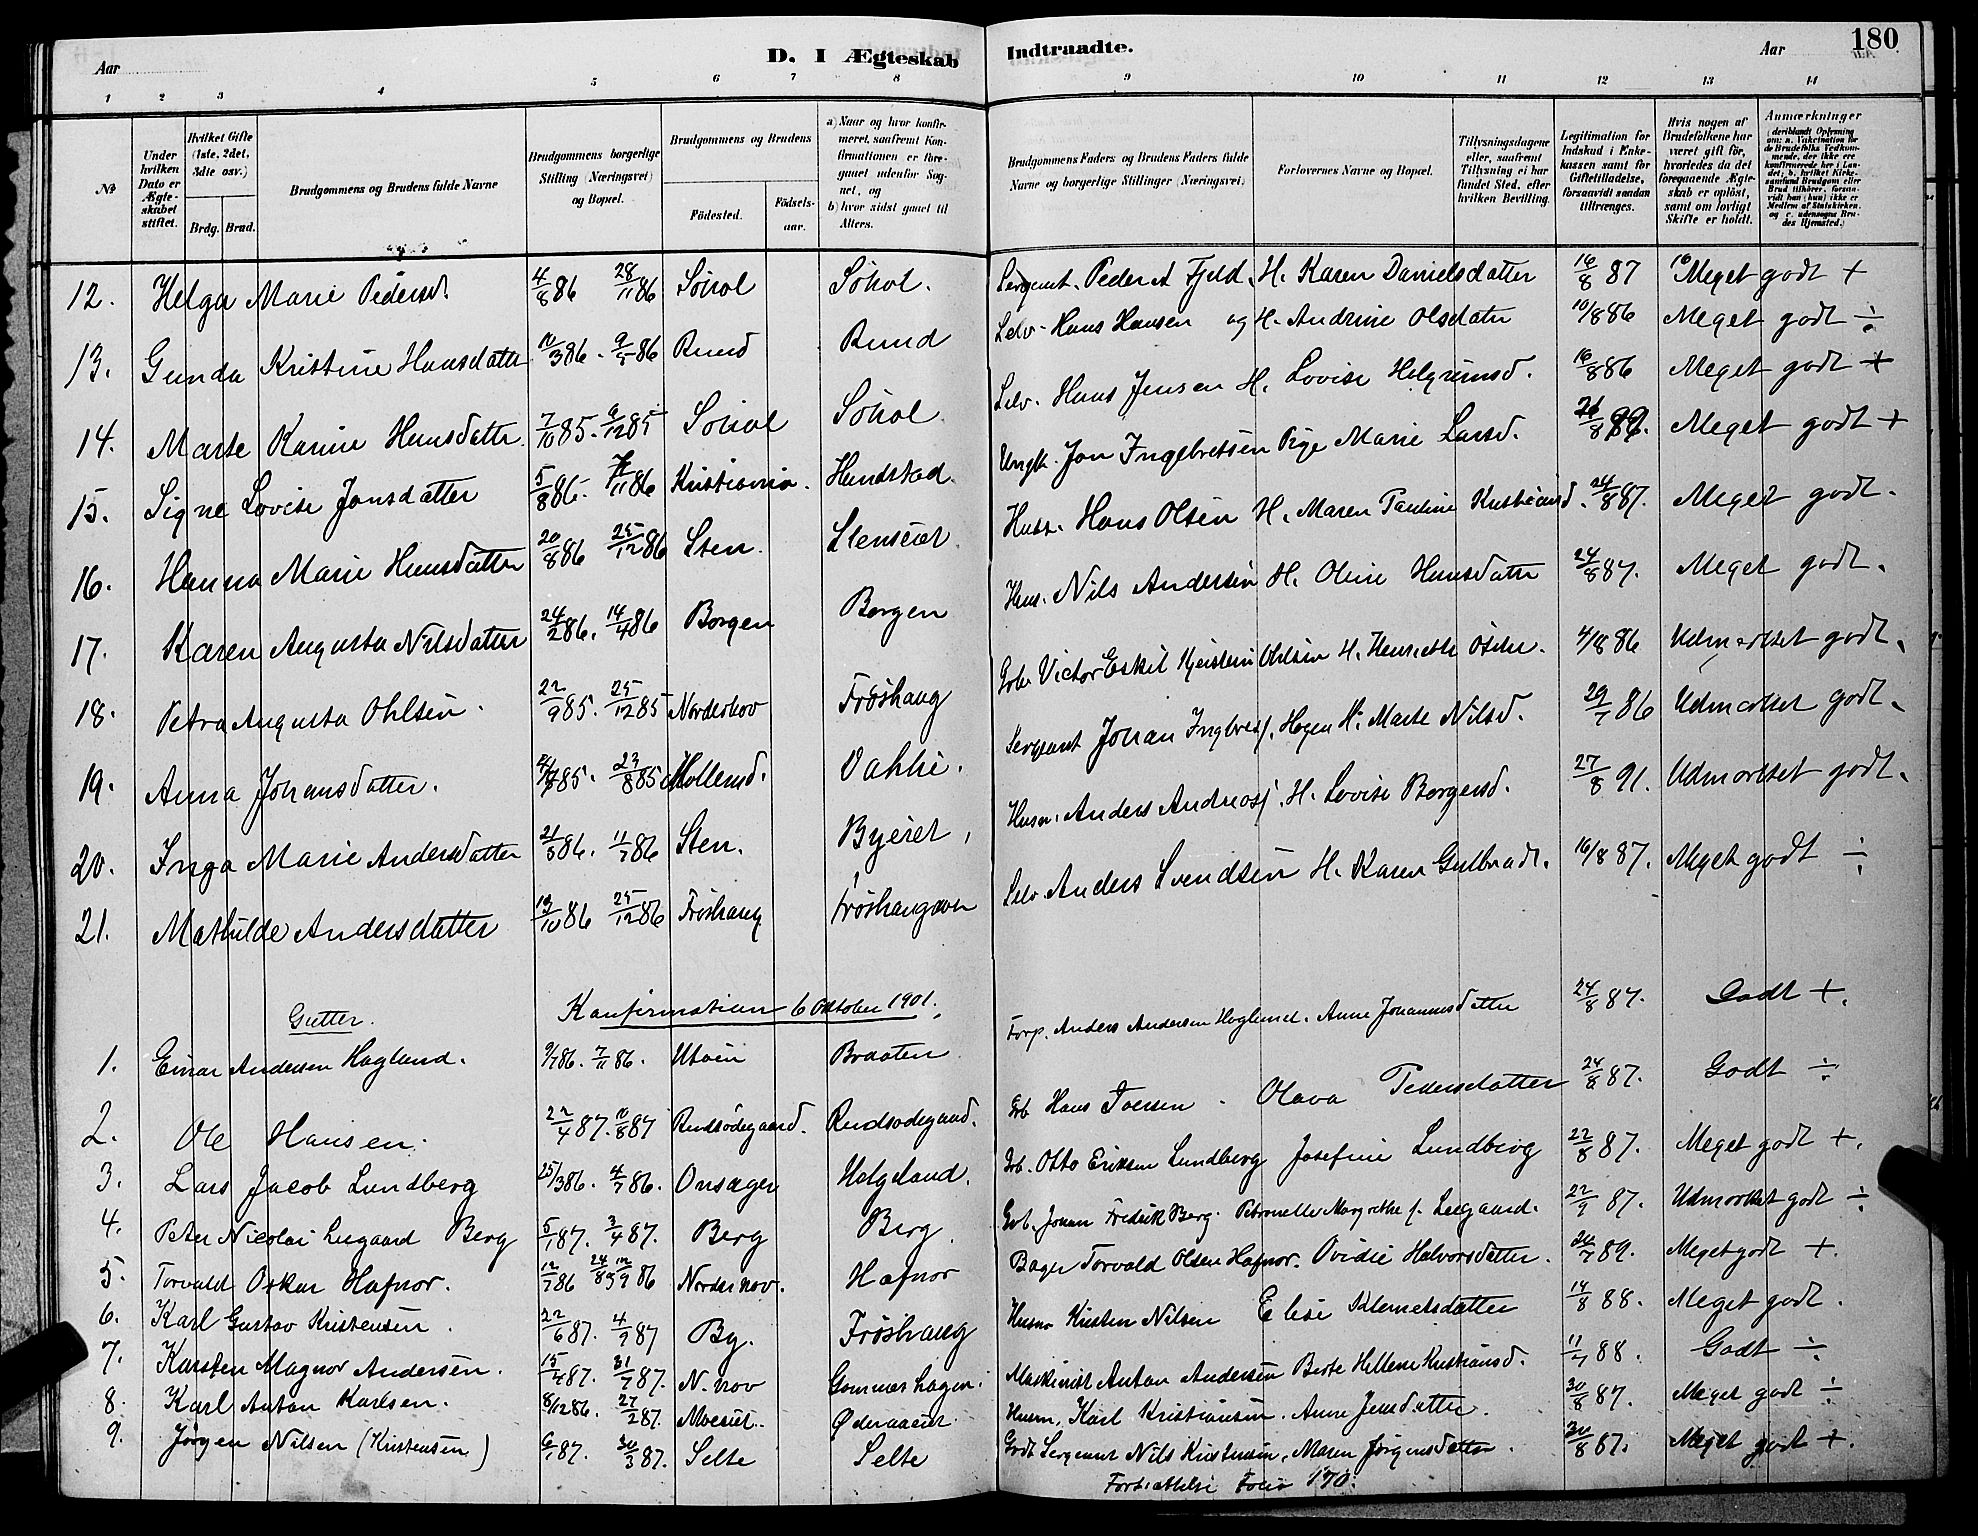 Aar
D. I Ægteskab
Indtraadte.
Aar
180
1 2 3 4 5 6 7 8 9 10 11 12 13 14
№
Under hvilken Dato er Ægteskabet stiftet.
Hvilket Gifte (1ste, 2det, 3die osv.)
Brdg. Brud.
Brudgommens og Brudens fulde Navne
Brudgommens borgerlige Stilling (Næringsvei) og Bopæl.
Brudgommens og Brudens
Födested.
Födselsaar.
a) Naar og hvor konfirmeret, saafremt Konfirmationen er foregaaet udenfor Sognet, og
b) hvor sidst gaaet til Alters.
Brudgommens Faders og Brudens Faders fulde Navne og borgerlige Stillinger (Næringsvei)
Forlovernes Navne og Bopæl.
Tillysningsdagene eller, saafremt Tillysning ei har fundet Sted, efter hvilken Bevilling.
Legitimation for Indskud i Enkekassen samt for Giftetilladelse, forsaavidt saadan tiltrænges.
Hvis nogen af Brudefolkene har været gift för, hvorledes da det foregaaende Ægteskab er oplöst, samt om lovligt Skifte er holdt.
Anmærkninger (deriblandt Oplysning om: a. Vakcination for de Brudefolks Vedkommende, der ikke ere konfirmerede her i Landet; b. hvilket Kirkesamfund Brudgom eller Brud tilhörer, forsaavidt han (hun) ikke er Medlem af Statskirken, og c. udensogns Brudes Hjemsted.)
12. Helga Marie Pedersd. 4/8 86 28/11 86 Sohol Sohol. Sergent. Peder A Fjeld. H. Karen Danielsdatter 16/8 87 Meget godt +
13. Gunda Kristine Hansdatter 86. 86 Rund Rund Selv. Hans Hansen og H. Andrine Olsdatter 10/8 86 Meget godt ÷
14. Marte Karine Hansdatter 7/10 85. 6/12 85 Sohol Sohol. Selv. Hans Jensen H. Lovise Helgrimsd. 16/8 86 Meget godt +
15. Signe Lovise Jonsdatter 5/8 86. 86 Kristiania. Hundstad. Ungk. Jon Ingebretsen Pige Marie Larsd. Meget godt +
16. Hanna Marie Hansdatter 20/8 86 25/12 86 Sten. Stenseiet Husm. Hans Olsen H. Maren Pauline Kristiansd. 24/8 87. Meget godt.
17. Karen Augusta Nilsdatter 24/2 86. 14/4 86 Borgen Borgen Husm. Nils Andersen H. Oline Hansdatter 24/8 87. Meget godt.
18. Petra Augusta Ohlsen. 22/9 85. 25/12 85 Norderhov Frøshaug Grbr. Victor Eskil Ohlsen H. Henriette 4/8 86 Udmærket godt.
19. Anna Johansdatter. 85. 23/8 85 Dahlie. Sergeant Johan Ingbretsf. Hogen H. Marte Nilsd. 29/7 86 Udmærket godt.
20. Inga Marie Andersdatter 86. 11/7 86 Sten. Byeiet. Husm. Anders Andreasf. H. Lovise Borgersd. 27/8 91. Udmærket godt.
21. Mathilde Andersdatter 86 25/12 86 Frøshaug Frøshaugøien Selv Anders Svendsen H. Karen Gulbradt. 16/8 87. Meget godt ÷
Gutter. Konfirmation 6 Oktober 1901.
1. Einar Andersen Haglund. 9/7 86. 7/11 86. Braaten Forp. Anders Andersen Hoglund. Anne Johannesdatter 24/8 87. Godt +.
2. Ole Hansen. 22/4 87. 87 Rudsødegaard. Rudsødegaard. Grb. Hans Iversen. Olava Pedersdatter 24/8 87. Godt ÷
3. Lars Jacob Lundberg 25/3 86. 4/7 86. Onsager Helgeland. Grb. Otto Eriksen Lundberg Josefine Lundberg 22/8 87. Meget godt +.
4. Peter Nicolai Leegaard Berg 5/1 87. 3/4 87. Berg Berg. Grb. Johan Fredrik Berg. Petronelle Margrethe f. Leegaard. 87. Udmærket godt ÷
5. Torvald Oskar Hafnor. 12/7 86 Norderhov. Hafnor Bager Torvald Olsen Hafnor. Ovidie Halvorsdatter. 89. Meget godt +.
6. Karl Gustav Kristensen. 22/6 87. 4/9 87 By. Frøshaug Husm Kristen Nilsen Elise Klemetsdatter 14/8 88. Meget godt.
7. Karsten Magnor Andersen. 15/4 87. 31/7 87. N.hov Gommerhagen. Maskinist Anton Andersen Berte Hellene Kristiansd. 11/7 88. Godt ÷
8. Karl Anton Karlsen. 8/12 86. 27/2 87. Moeiet. Husm. Karl Kristiansen. Anne Jensdatter. 30/8 87. Meget godt ÷
9. Jørgen Nilsen (Kristensen) 6/1 87. 30/3 87. Selte Selte Sergeant Nils Kristensen, Maren Jørgensdatter. 30/8 87. Meget godt +.
Fortsættelse Folio 170.